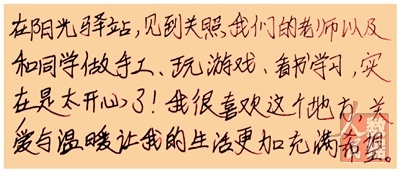 在阳光驿站,见到关照我们的老师以及
和同学做手工、玩游戏、看书学习,实
在是太开心了!我很喜欢这个地方,关
爱与温暖让我的生活更加充满希望。